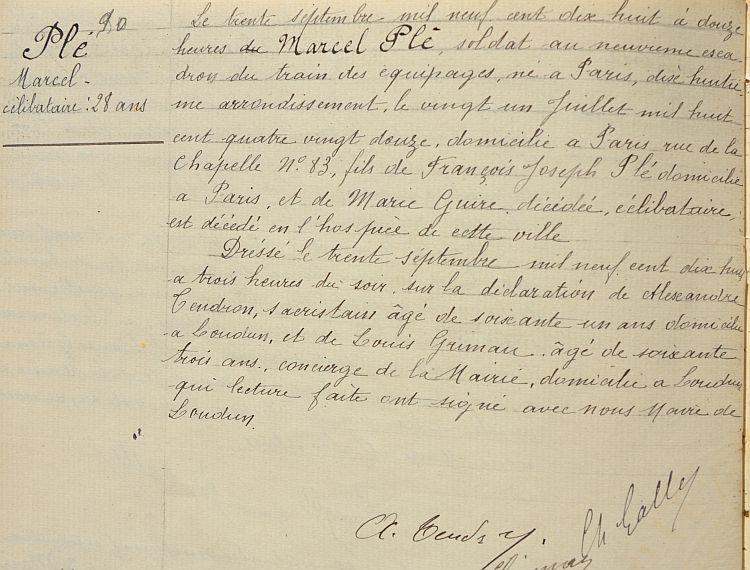 20
Plé
Marcel -
célibataire : 28 ans
Le trente septembre mil neuf cent dix huit à douze
heures du Marcel Plé, soldat au neuvième esca-
dron du train des équipages, né à Paris, dix huitiè
me arrondissement, le vingt un Juillet mil huit
cent quatre vingt douze, domicilié à Paris rue de la
Chapelle No 83, fils de François Joseph Plé domicilié
a Paris, et de Marie Guire décédée, célibataire,
est décédé en l'hospice de cette ville
Dréssé le trente séptembre mil neuf cent dix huit
a trois heures du soir, sur la déclaration de Alexandre
Tendron, sacristain âgé de soixante un ans domicilié
a Loudun, et de Louis Grimau âgé de soixante
trois ans, concierge de la Mairie, domicilié a Loudun
qui lecture faite ont signé avec nous Maire de
Loudun.
A. Tendr